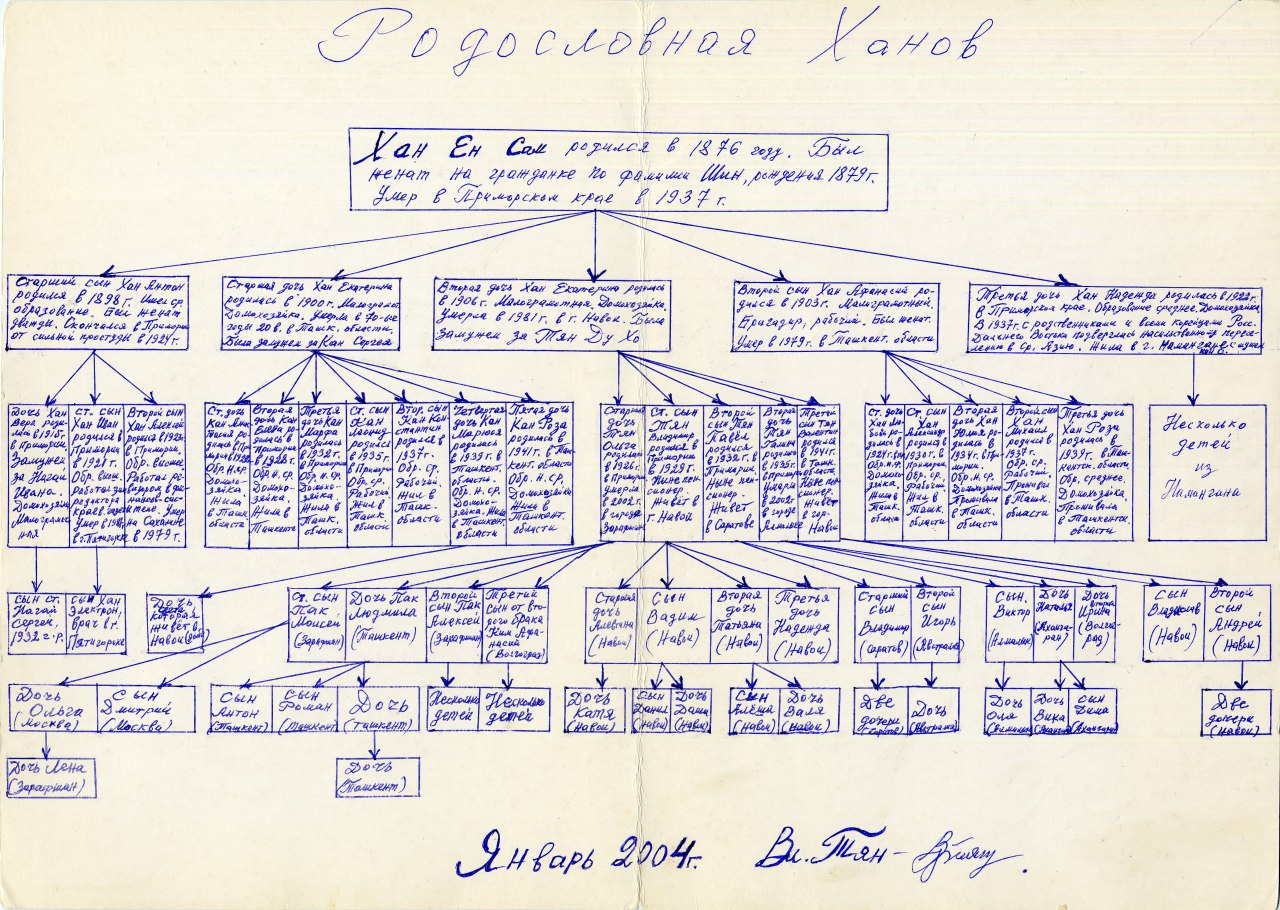 Родословная Ханов
Хан Ен Сам родился в 1876 году. Был
женат на гражданке по фамилии Шин, рождения 1879 г.
Умер в Приморском крае в 1937 г.
Старший сын Хан Антон
родился в 1898 г. Имел ср.
образование. Был женат
дважды. Скончался в Приморье
от сильной простуды в 1924 г.
Старшая дочь Хан Екатерина
родилась в 1900 г. Малограмот.
Домохозяйка. Умерла в 70-ые
годы 20 в. в Ташк. области.
Была замужем за Кан Сергея
Вторая дочь Хан Екатерина родилась
в 1906 г. Малограмотная. Домохозяйка.
Умерла в 1981 г. в г. Навои. Была
замужем за Тян Ду Хо
Второй сын Хан Афанасий ро-
дился в 1903 г. Малограмотный.
Бригадир, рабочий. Был женат.
Умер в 1979 г. в Ташкент. области
Третья дочь Хан Надежда родилась в 1922 г.
в Приморском крае. Образование среднее. Домохозяйка.
В 1937 г. с родственниками и всеми корейцами Росс.
Дальнего Востока подверглась насильственному пересе-
лению в Ср. Азию. Жила в г. Намангане с мужем
Дочь Хан
Вера роди-
лась в 1915 г.
в Приморье.
Замужем
за Нагай
Ивана.
Домохозяйка
Малограмот-
ная
Ст. сын
Хан Иван
родился в
Приморье
в 1921 г.
Обр. высш.
Умер в 1981
в г. Пятигорске
Второй сын
Хан Алексей
родился в 1923 г.
в Приморье.
Обр. высшее.
Умер
на Сахалине
в 1979 г.
Ст. дочь
Обр. н. ср.
Домохо-
зяйка.
Жила
в Ташк.
области
Вторая
дочь Кан
родилась в
Приморье
в 1928 г.
Обр. н. ср.
Домохо-
зяйка.
Жила в
Ташкенте
Третья
дочь Кан
Марфа
родилась в
1932 г. в
Приморье
Обр. н. ср.
Домохо-
зяйка.
Жила в
Ташк.
области
Ст. сын
Кан
родился в
1935 г.
в Приморье
Обр. ср.
Рабочий
Жил в
Ташк.
области
Втор. сын
Кан Кон-
стантин
родился в
1937 г.
Обр. ср.
Рабочий.
Жил в
Ташк.
области
Четвертая
дочь Кан
родилась в
1939 г. в
Ташкент.
области.
Обр. н. ср.
Домохо-
зяйка. Жила
в Ташкент.
области
Пятая дочь
Кан Роза
родилась в
1941 г. в Таш-
кент. области
Обр. н. ср.
Домохозяйка
Жила в
Ташкент.
области
Старшая
дочь
Тян
Ольга
родилась
в 1926 г.
в Приморье
умерла
в 2002 г.
в городе
Зарафшан
Ст. сын
Тян
Владимир
родился
в Приморье
в 1929 г.
Ныне пен-
сионер.
Живет в
г. Навои
Второй
сын Тян
Павел
родился
в 1932 г. в
Приморье.
Ныне пен-
сионер.
Живет
в Саратове
Вторая
дочь
Тян
Галина
родилась
в 1935 г. в
Приморье
умерла в
2002 г.
в городе
Третий
сын Тян
Валентин
родился
в 1941 г. в
Ташк.
области
Ныне пен-
сионер.
Живет
в гор.
Навои
Ст. дочь
Хан
родилась в
1924 г. в
Обр. н. ср.
Домохо-
зяйка.
Жила в
Ташк.
области
Ст. сын
Хан
Александр
родился в
1930 г. в
Приморье
Обр. ср.
Рабочий
Жил в
Ташк.
области
Вторая
дочь Хан
Юлия ро-
дилась в
1934 г. в При-
морье.
Обр. ср.
Домохозяйка
Проживала
в Ташк.
области
Второй сын
Хан
Михаил
родился в
1937 г.
Обр. ср.
Рабочий.
Проживал
в Ташк.
области
Третья дочь
Хан Роза
родилась в
1939 г. в Таш-
кентск. области
Обр. среднее.
Домохозяйка.
Проживала
в Ташкентск.
области
Несколько
детей
из
Намангана
Сын ст.
Нагай
Сергей,
1932 г. р.
Сын Хан
Электрон,
врач в г.
Пятигорске
Дочь,
которая
живет в
Навои
Ст. сын
Пак
Моисей
(Зарафшан)
Дочь Пак
Людмила
(Ташкент)
Второй
сын Пак
Алексей
(Зарафшан)
Третий
сын от вто-
рого брака
Ким Афа-
насий
(Волгоград)
Старшая
дочь
Алевтина
(Навои)
Сын
Вадим
(Навои)
Вторая
дочь
Татьяна
(Навои)
Третья
дочь
Надежда
(Навои)
Старший
сын
Владимир
(Саратов)
Второй
сын
Игорь
(Австралия)
Сын
Виктор
(Алмалык)
Дочь
Наталья
(Ахангаран)
Дочь
вторая
Ирина
(Волго-
град)
Сын
Владислав
(Навои)
Второй
сын
Андрей
(Навои)
Дочь
Ольга
(Москва)
Сын
Дмитрий
(Москва)
Сын
Антон
(Ташкент)
Сын
Роман
(Ташкент)
Дочь
(Ташкент)
Несколько
детей
Несколько
детей
Дочь
Катя
(Навои)
Сын
Данил
(Навои)
Дочь
Даша
(Навои)
Сын
Алёша
(Навои)
Дочь
Валя
(Навои)
Две
дочери
(Саратов)
Дочь
(Австралия)
Дочь
Оля
(Алмалык)
Дочь
Вика
Сын
Дима
(Ахангаран)
Две
дочери
(Навои)
Дочь Лена
(Зарафшан)
Дочь
(Ташкент)
Январь 2004 г. Вл. Тян-